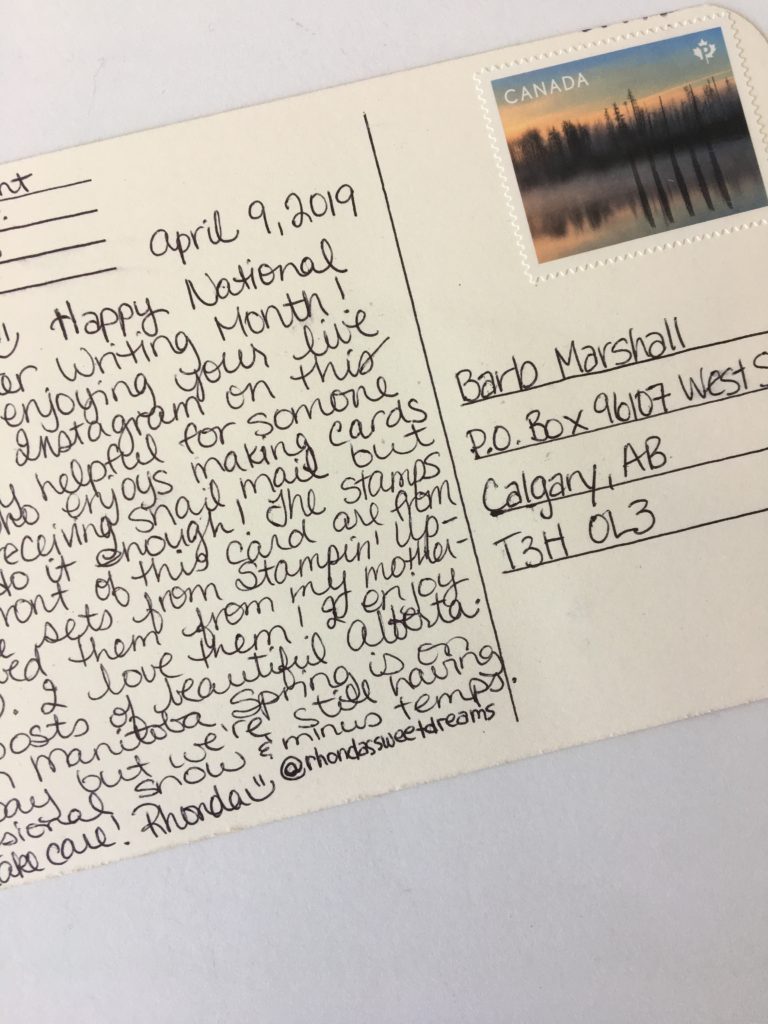 nt
april 9, 2019
Happy National
er Writing Month!
enjoying your live
Instagram on this
y helpful for somone
ho enjoys making cards
eceiving snail mail but
do it enough! The stamps
ront of this card are from
e sets from Stampin' Up-
ed them from my mother-
. I love them! I enjoy
posts of beautiful Alberta.
n Manitoba Spring is on
ay but we're still having
sional snow & minus temps.
ake care! Rhonda @rhondassweetdreams
CANADA
P
Barb Marshall
P.O. Box 96107 West S
Calgary, AB
T3H 0L3